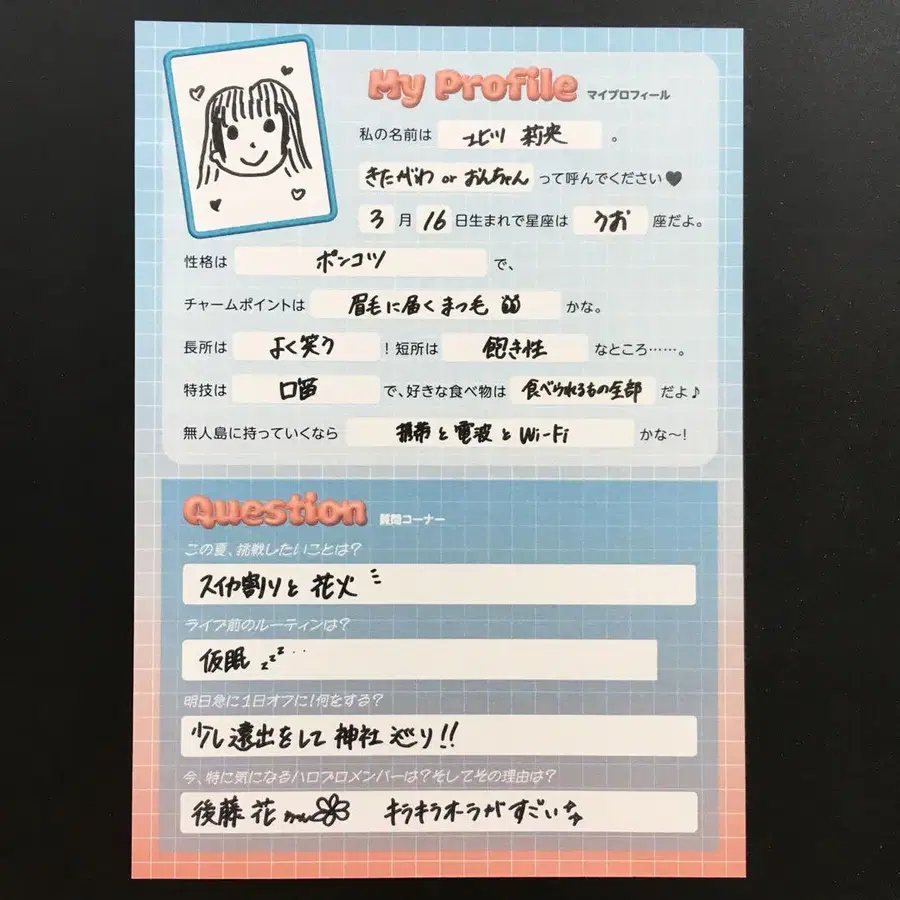 My Profile マイプロフィール
私の名前は 北川 莉央 。
きたがわ or おんちゃん って呼んでください♥
3 月 16 日生まれで星座は うお 座だよ。
性格は ポンコツ で、
チャームポイントは 眉毛に届くまつ毛 かな。
長所は よく笑う ！短所は 飽き性 なところ……。
特技は 口笛 で、好きな食べ物は 食べられるもの全部 だよ♪
無人島に持っていくなら 携帯と電波とWi-Fi かな〜！
Question 質問コーナー
この夏、挑戦したいことは？
スイカ割りと花火
ライブ前のルーティンは？
仮眠 zzz..
明日急に1日オフに！何をする？
少し遠出をして神社巡り!!
今、特に気になるハロプロメンバーは？そしてその理由は？
後藤花ちゃん キラキラオーラがすごい